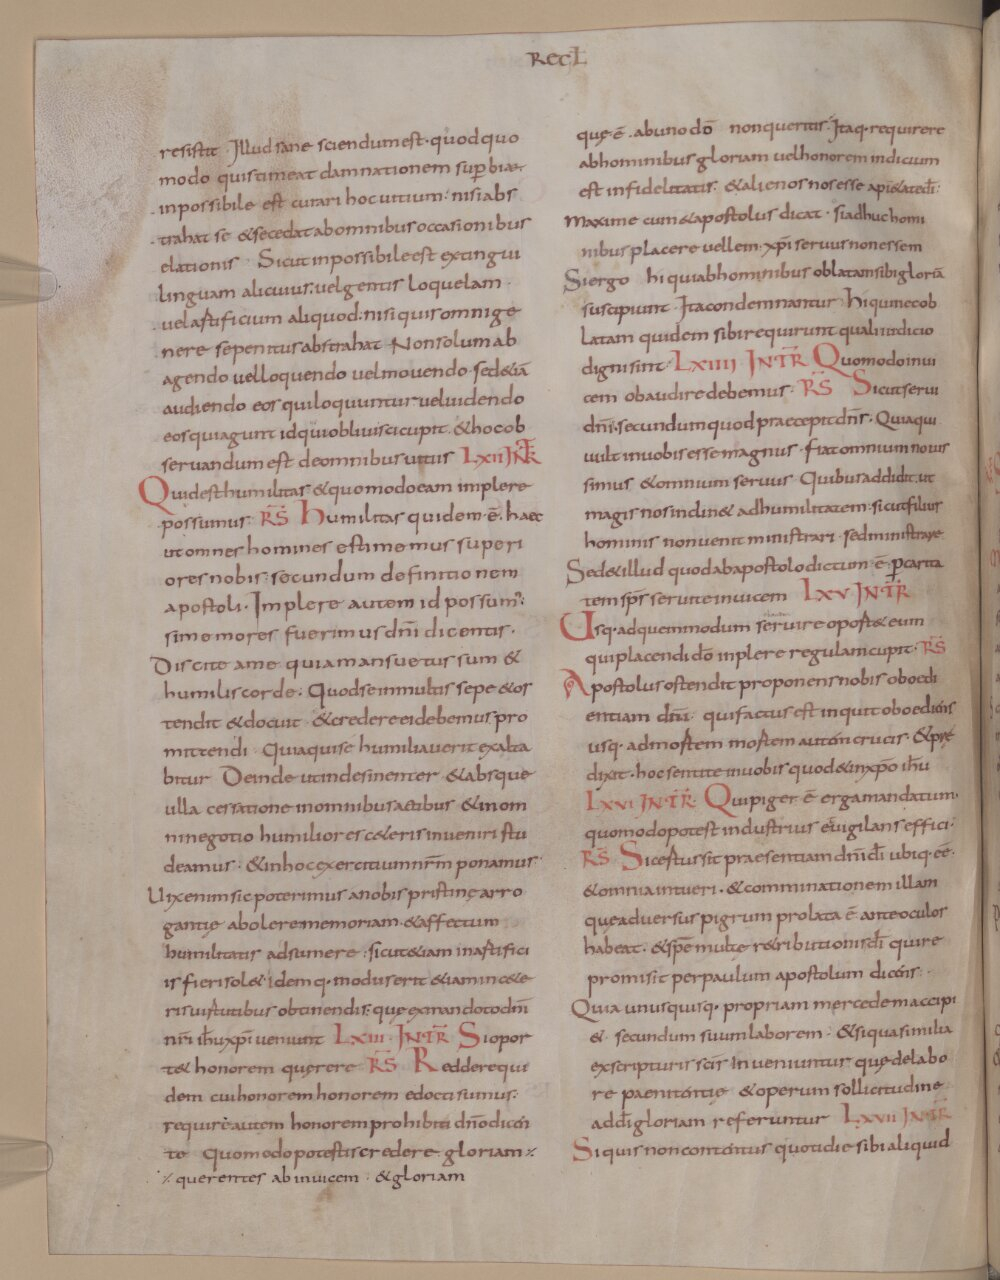 Recł
resistit Illud sane sciendum est· quod quo
modo quis timeat damnationem superbiae
inpossibile est curari hoc uitium· nisi abs
trahat se & secedat ab omnibus occasionibus
elationis Sicut inpossibile est extingui
linguam alicuius· uel gentis loquelam·
uel artificium aliquod· nisi quis omni ge
nere se penitus abstrahat Non solum ab
agendo uel loquendo uel mouendo· sed &iā
audiendo eos qui loquuntur uel uidendo
eos qui agunt id quod obliuisci cupit· & hoc ob
seruandum est de omnibus uitiis LXII INTR̄
Quid est humilitas & quomodo eam implere
possumus· RS̄ Humilitas quidem ē· haec
ut omnes homines estimemus superi
ores nobis· secundum definitionem
apostoli· Implere autem id possum:
si memores fuerimus dn̄i dicentis·
Discite a me quia mansuetus sum &
humilis corde· Quod se in multis sepe & os
tendit & docuit· & credere ei debemus pro
mittenti· Quia qui se humiliauerit exalta
bitur Deinde ut indesinenter & absque
ulla cessatione in omnibus actibus & in om
ni negotio humiliores c&eris inueniri stu
deamus· & in hoc exercitium nr̄m ponamus
Uix enim sic poterimus a nobis pristinę arro
gantię abolere memoriam & affectum
humilitatis adsumere· sicut &iam in artifici
is fieri sol&· idemq· modus erit &iam in c&e
ris uirtutibus obtinendis· que ex mandato dn̄i
nr̄i ih̄u xp̄i ueniunt LXIII· INTR̄ Si opor
t& honorem querere RS̄ Reddere qui
dem cui honorem honorem edocti sumus·
require autem honorem prohibiti dn̄o dicen
te Quomodo potestis credere gloriam ⁒
⁒ querentes ab inuicem· & gloriam
quę ē· ab uno dō non queritis· Itaq· requirere
ab hominibus gloriam uel honorem indicium
est infidelitatis· & alienos nos esse a pi&ate dī·
Maxime cum & apostolus dicat· si adhuc homi
nibus placere uellem· xp̄i seruus non essem
Si ergo hi qui ab hominibus oblatam sibi gloriā
suscipiunt Ita condemnantur Hi qui nec ob
latam quidem sibi requirunt quali iudicio
digni sint· LXIIII INTR̄ Quomodo inui
cem obaudire debemus· RS̄ Sicut serui
dn̄i· secundum quod praecepit dn̄s· Quia qui
uult in uobis esse magnus· fiat omnium nouis
simus & omnium seruus Quibus addidit· ut
magis nos indin& ad humilitatem· sicut filius
hominis non uenit ministrari· sed ministrare
Sed & illud quod ab apostolo dictum ē· per carita
tem sp̄s seruite inuicem LXV INTR̄
Usq· ad quem modum seruire oport& eum
qui placendi dō inplere regulam cupit· RS̄
Apostolus ostendit proponens nobis oboedi
entiam dn̄i· qui factus est inquit oboediens
usq· ad mortem mortem autem crucis· & prę
dixit· hoc sentite in uobis quod & in xp̄o ih̄u
LXVI INTR̄· Qui piger ē erga mandatum·
quomodo potest industrius & uigilans effici·
RS̄ Si certus sit praesentiam dn̄i dī ubiq· ēē·
& omnia intueri· & comminationem illam
que aduersus pigrum prolata ē ante oculos
habeat· & spē multę r&ributionis dī qui re
promisit per paulum apostolum dicens·
Quia unusquisq· propriam mercedem accipi
&· secundum suum laborem· & si qua similia
ex scripturis sc̄is inueniuntur que de labo
re paenitentię & operum sollicitudine
ad dī gloriam referuntur LXVII INTR̄
Si quis non contentus quotidie sibi aliquid